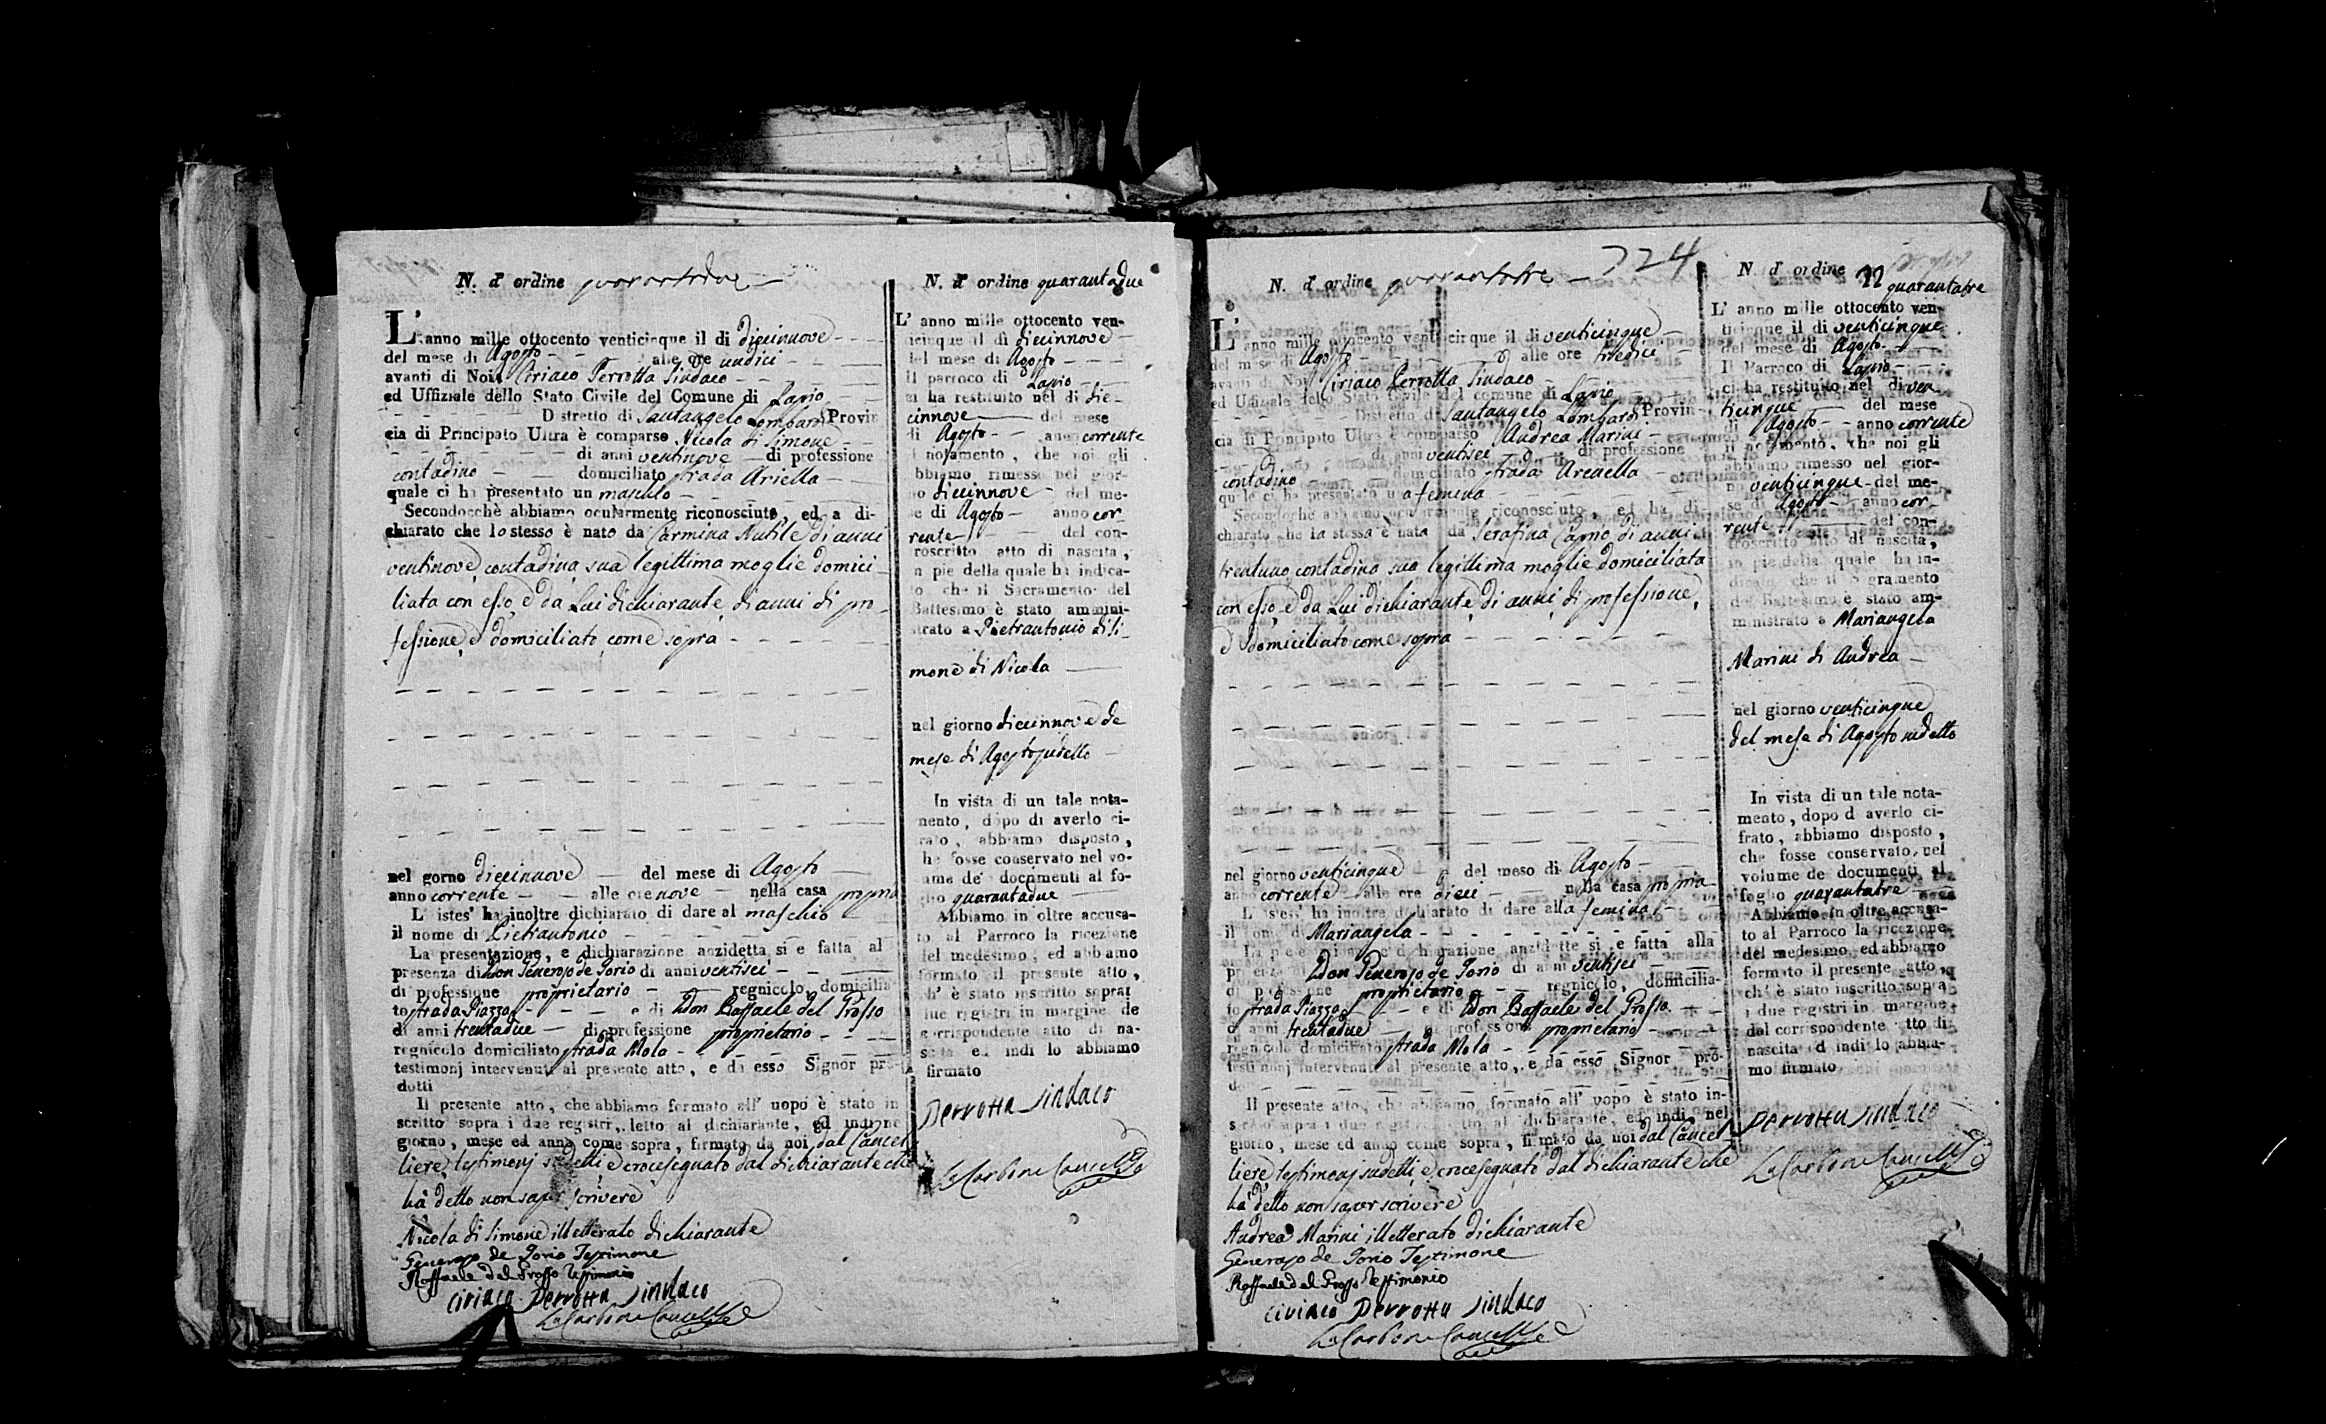 N. d' ordine quarantadue
L' anno mille ottocento venticinque il di diecinnove
del mese di Agosto alle ore undici
avanti di Noi Ciriaco Perrotta Sindaco
ed Uffiziale dello Stato Civile del Comune di Lapio
Distretto di Santangelo Lombardi Provin
cia di Principato Ultra è comparso Nicola di Simone
di anni ventinove di professione
contadino domiciliato strada Ariella
quale ci ha presentato un maschio
Secondocchè abbiamo ocularmente riconosciuto, ed a di-
chiarato che lo stesso è nato da Carmina Nutile di anni
ventinove contadina sua legittima moglie domici-
liata con esso, e da Lui dichiarante di anni di pro-
fessione, e domiciliato come sopra
nel gorno diecinnove del mese di Agosto
anno corrente alle ore nove nella casa propria
L' istess' ha inoltre dichiarato di dare al maschio
il nome di Pietrantonio
La presentazione, e dichiarazione anzidetta si e fatta al
presenza di Don Generoso de Iorio di anni ventisei
di professione proprietario regnicolo, domicilia
to strada Piazza e di Don Raffaele del Grosso
di anni trentadue di professione proprietario
regnicolo domiciliato strada Mola
testimonj intervenuti al presente atto, e da esso Signor pro-
dotti
Il presente atto, che abbiamo formato all' uopo è stato in
scritto sopra i due registri, letto al dichiarante, ed indi ne
giorno, mese ed anno come sopra, firmato da noi dal Cancel-
liere, testimonj sudetti e crocesegnato dal dichiarante che
hà detto non saper scrivere
Nicola di Simone illetterato dichiarante
Generoso de Iorio Testimone
Raffaele del Grosso Testimonio
Ciriaco Perrotta Sindaco
N. d' ordine quarantadue
L' anno mille ottocento ven-
ticinque il di diecinnove
del mese di Agosto
Il parroco di Lapio
ci ha restituito nel di die-
cinnove del mese
di Agosto anno corrente
il notamento, che noi gli
abbiamo rimesso nel gior-
no diecinnove del me-
se di Agosto anno cor-
rente del con-
troscritto atto di nascita,
a pie della quale ha indica-
to che il Sacramento del
Battesimo è stato ammini-
strato a Pietrantonio di Si-
mone di Nicola
nel giorno diecinnove de
mese di Agosto sudetto
In vista di un tale nota-
mento, dopo di averlo ci-
frato, abbiamo disposto,
che fosse conservato nel vo-
lume de' documenti al fo-
glio quarantadue
Abbiamo in oltre accusa-
to al Parroco la ricezione
del medesimo, ed abbiamo
formato il presente atto,
ch' è stato inscritto sopra i
due registri in margine de
corrispondente atto di na-
scita ed indi lo abbiamo
firmato
Perrotta Sindaco
N. d' ordine quarantatre
324
L' anno mille ottocento venticinque il di venticinque
del mese di Agosto alle ore tredici
avanti di Noi Ciriaco Perrotta Sindaco
ed Uffiziale dello Stato Civile del comune di Lapio
Distretto di Santangelo Lombardi Provin-
cia di Principato Ultra è comparso Andrea Marini
di anni ventisei di professione
contadino domiciliato strada Arenella
quale ci ha presentato una femina
Secondochè abbiamo ocularmente riconosciuto, ed ha di-
chiarato che la stessa è nata da Serafina Carpo di anni
trentuno contadina sua legittima moglie domiciliata
con esso, e da Lui dichiarante di anni, di professione,
e domiciliato come sopra
nel giorno venticinque del meso di Agosto
anno corrente alle ore dieci nella casa propria
L' istess' ha inoltre dichiarato di dare alla femina
il nome di Mariangela
La presentazione, e dichiarazione anzidette si e fatta alla
presenza di Don Generoso de Iorio di anni ventisei
di professione proprietario regnicolo, domicilia-
to strada Piazza e di Don Raffaele del Grosso
di anni trentadue di professione proprietario
regnicolo domiciliato strada Mola
testimonj intervenuti al presente atto, e da esso Signor pro-
dotti
Il presente atto, che abbiamo formato all' uopo è stato in-
scritto sopra i due registri, letto al dichiarante, ed indi nel
giorno, mese ed anno come sopra, firmato da noi dal Cancel-
liere, testimonj sudetti, e crocesegnato dal dichiarante che
hà detto non saper scrivere
Andrea Marini illetterato dichiarante
Generoso de Iorio Testimone
Raffaele del Grosso Testimonio
Ciriaco Perrotta Sindaco
N. d' ordine
quarantatre
L' anno mille ottocento ven-
ticinque il di venticinque
del mese di Agosto
Il Parroco di Lapio
ci ha restituito nel di ven-
ticinque del mese
di Agosto anno corrente
il notamento, che noi gli
abbiamo rimesso nel gior-
no venticinque del me-
se di Agosto anno cor-
rente del con-
troscritto atto di nascita,
in pie della quale ha in-
dicato che il Sagramento
del Battesimo è stato am-
ministrato a Mariangela
Marini di Andrea
nel giorno venticinque
del mese di Agosto sudetto
In vista di un tale nota-
mento, dopo d averlo ci-
frato, abbiamo disposto,
che fosse conservato nel
volume de documenti al
foglio quarantatre
Abbiamo in oltre accusa-
to al Parroco la ricezione
del medesimo ed abbiamo
formato il presente atto,
ch' è stato inscritto sopra
i due registri in margine
dal corrispondente atto di
nascita ed indi lo abbia-
mo firmato
Perrotta Sindaco